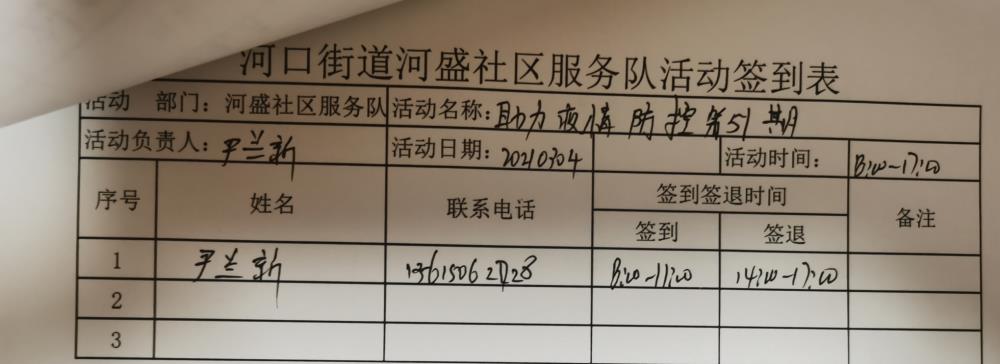 河口街道河盛社区服务队活动签到表
活动 部门：河盛社区服务队 活动名称：助力疫情防控第51期
活动负责人：尹兰新 活动日期：20210304 活动时间： 8:00-17:00
序号 姓名 联系电话 签到签退时间 备注
签到 签退
1 尹兰新 8:00-11:00 14:00-17:00
2
3